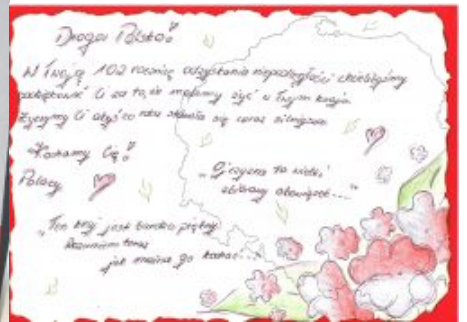 Droga Polsko!
W Twoją 102 rocznicę odzyskania niepodległości chcieliśmy
podziękować Ci za to, że możemy żyć w Twym kraju.
Życzymy Ci abyś co roku stawała się coraz silniejsza.
Kochamy Cię!
Polacy
"Ojczyzna to wielki
zbiorowy obowiązek...."
"Ten kraj jest bardzo piękny
Rozumiem teraz
jak można go kochać..."